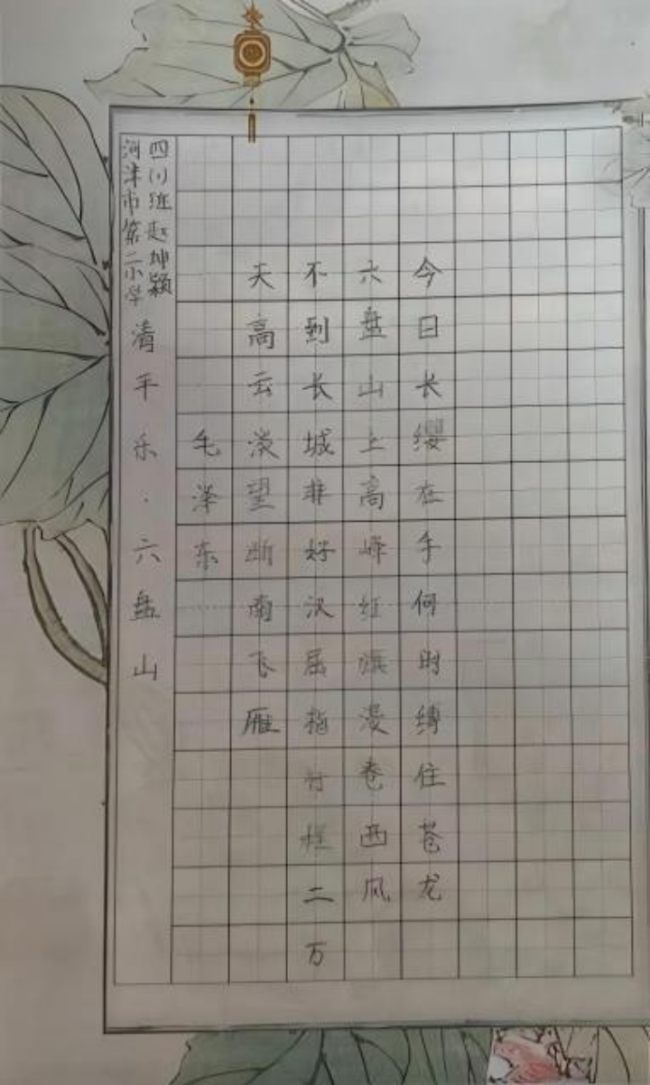 河津市第二小学
四(1)班赵坤颖
清平乐·六盘山
毛泽东
天高云淡望断南飞雁
不到长城非好汉屈指行程二万
六盘山上高峰红旗漫卷西风
今日长缨在手何时缚住苍龙